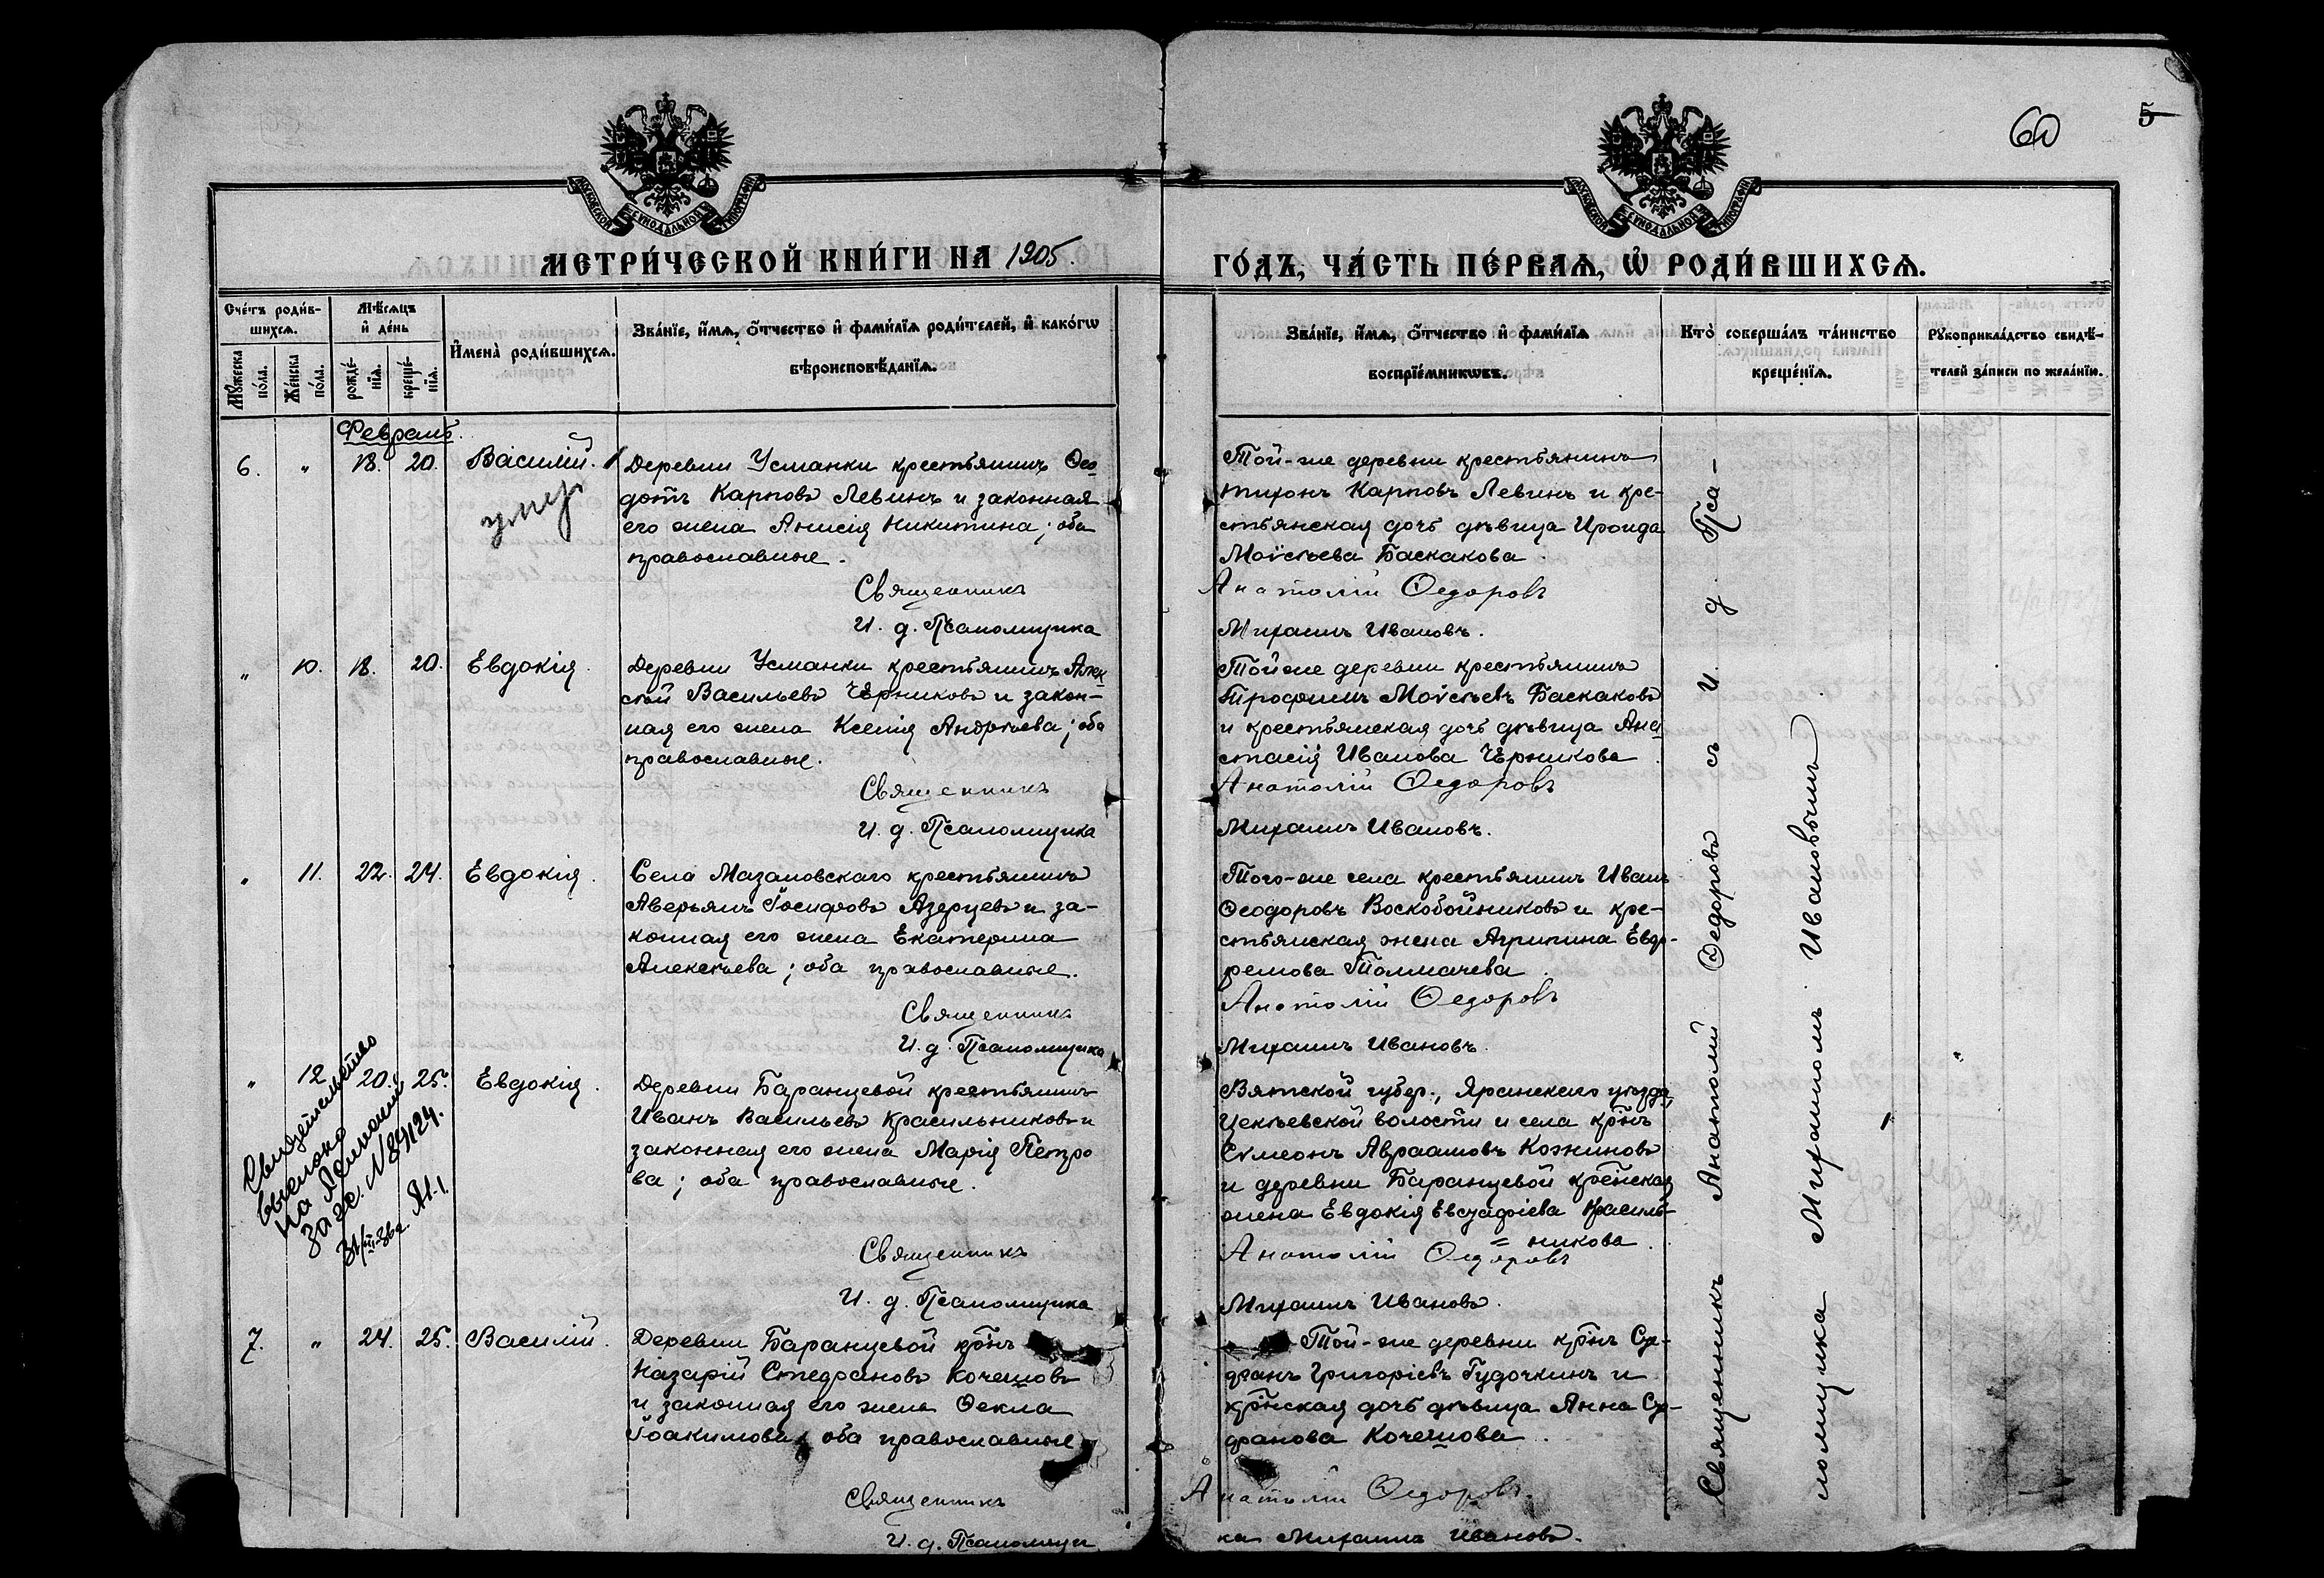 60
5
МОСКОВСКОЙ СѴНОДАЛЬНОЙ ТИПОГРАФІИ
МОСКОВСКОЙ СѴНОДАЛЬНОЙ ТИПОГРАФІИ
МЕТРИ́ЧЕСКОЙ КНИ́ГИ НА 1905.
ГО́ДЪ, ЧА́СТЬ ПЕ́РВАѦ, Ѡ҆ РОДИ́ВШИХСѦ.
Сче́тъ роди́в-
шихсѧ.
Мꙋ́жеска
по́ла.
Же́нска
по́ла.
Мѣ́сѧцъ
и҆ де́нь
рожде́-
нїѧ.
креще́-
нїѧ.
И҆мена̀ роди́вшихсѧ.
Зва́нїе, и҆́мѧ, ѻ҆́тчество и҆ фами́лїѧ роди́телей, и҆ како́гѡ
вѣроисповѣ́данїѧ.
Зва́нїе, и҆́мѧ, ѻ҆́тчество и҆ фами́лїѧ
воспрїе́мникѡвъ.
Кто̀ соверша́лъ та́инство
креще́нїѧ.
Рꙋкоприкла́дство свидѣ́-
телей за́писи по жела́нїю.
Февраль.
6. " 18. 20. Василій.
умер
Деревни Усманки крестьянинъ Ѳео
дотъ Карповъ Левинъ и законная
его жена Анисія Никитина; оба
православные.
Священникъ
И. д. Псаломщика
Той-же деревни крестьянинъ
Тихонъ Карповъ Левинъ и кре-
стьянская дочь дѣвица Ираида
Моѵсеева Баскакова.
Анатолій Ѳедоровъ
Михаилъ Ивановъ.
" 10. 18. 20. Евдокія.
Деревни Усманки крестьянинъ Алек
сѣй Васильевъ Черниковъ и закон-
ная его жена Ксенія Андреева; оба
православные.
Священникъ
И. д. Псаломщика
Той же деревни крестьянинъ
Трофимъ Моѵсеевъ Баскаковъ
и крестьянская дочь дѣвица Ана
стасія Иванова Черникова.
Анатолій Ѳедоровъ
Михаилъ Ивановъ.
" 11. 22. 24. Евдокія.
Села Мазаловскаго крестьянинъ
Аверьянъ Іосифовъ Азерцевъ и за-
конная его жена Екатерина
Алексѣева; оба православные.
Священникъ
И. д. Псаломщика
Того-же села крестьянинъ Иванъ
Ѳеодоровъ Воскобойниковъ и кре-
стьянская жена Агрипина Евфр-
емова Толмачева.
Анатолій Ѳедоровъ
Михаилъ Ивановъ.
" 12 20. 25. Евдокія.
Свидетельство
выслано
за № 89124.
Деревни Баранцевой крестьянинъ
Иванъ Васильевъ Красильниковъ и
законная его жена Марія Петро
ва; оба православные.
Священникъ
И. д. Псаломщика
Вятской губер., Яранскаго уѣзда,
Цекѣевской волости и села кр̅нъ
Сѵмеонъ Авраамовъ Кожиновъ
и деревни Баранцевой кр̅нская
жена Евдокія Евстафіева Красиль-
= никова.
Анатолій Ѳедоровъ
Михаилъ Ивановъ.
7. " 24. 25. Василій.
Деревни Баранцевой кр̅нъ
Назарій Стефановъ Кочешовъ
и законная его жена Ѳекла
Іоакимова, оба православные
Священникъ
И. д. Псаломщи
Той-же деревни кр̅нъ Сте-
фанъ Григоріевъ Гудочкинъ и
кр̅нская дочь дѣвица Анна Сте-
фанова Кочешова.
Анатолій Ѳедоровъ.
ка Михаилъ Ивановъ.
Священникъ Анатолій Ѳедоровъ съ И. д. Пса-
ломщика Михаиломъ Ивановымъ.